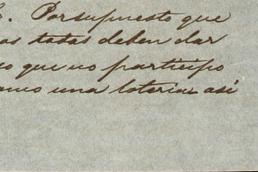 Por supuesto que
as todas deben dar
o que no participo
amos una loteria así